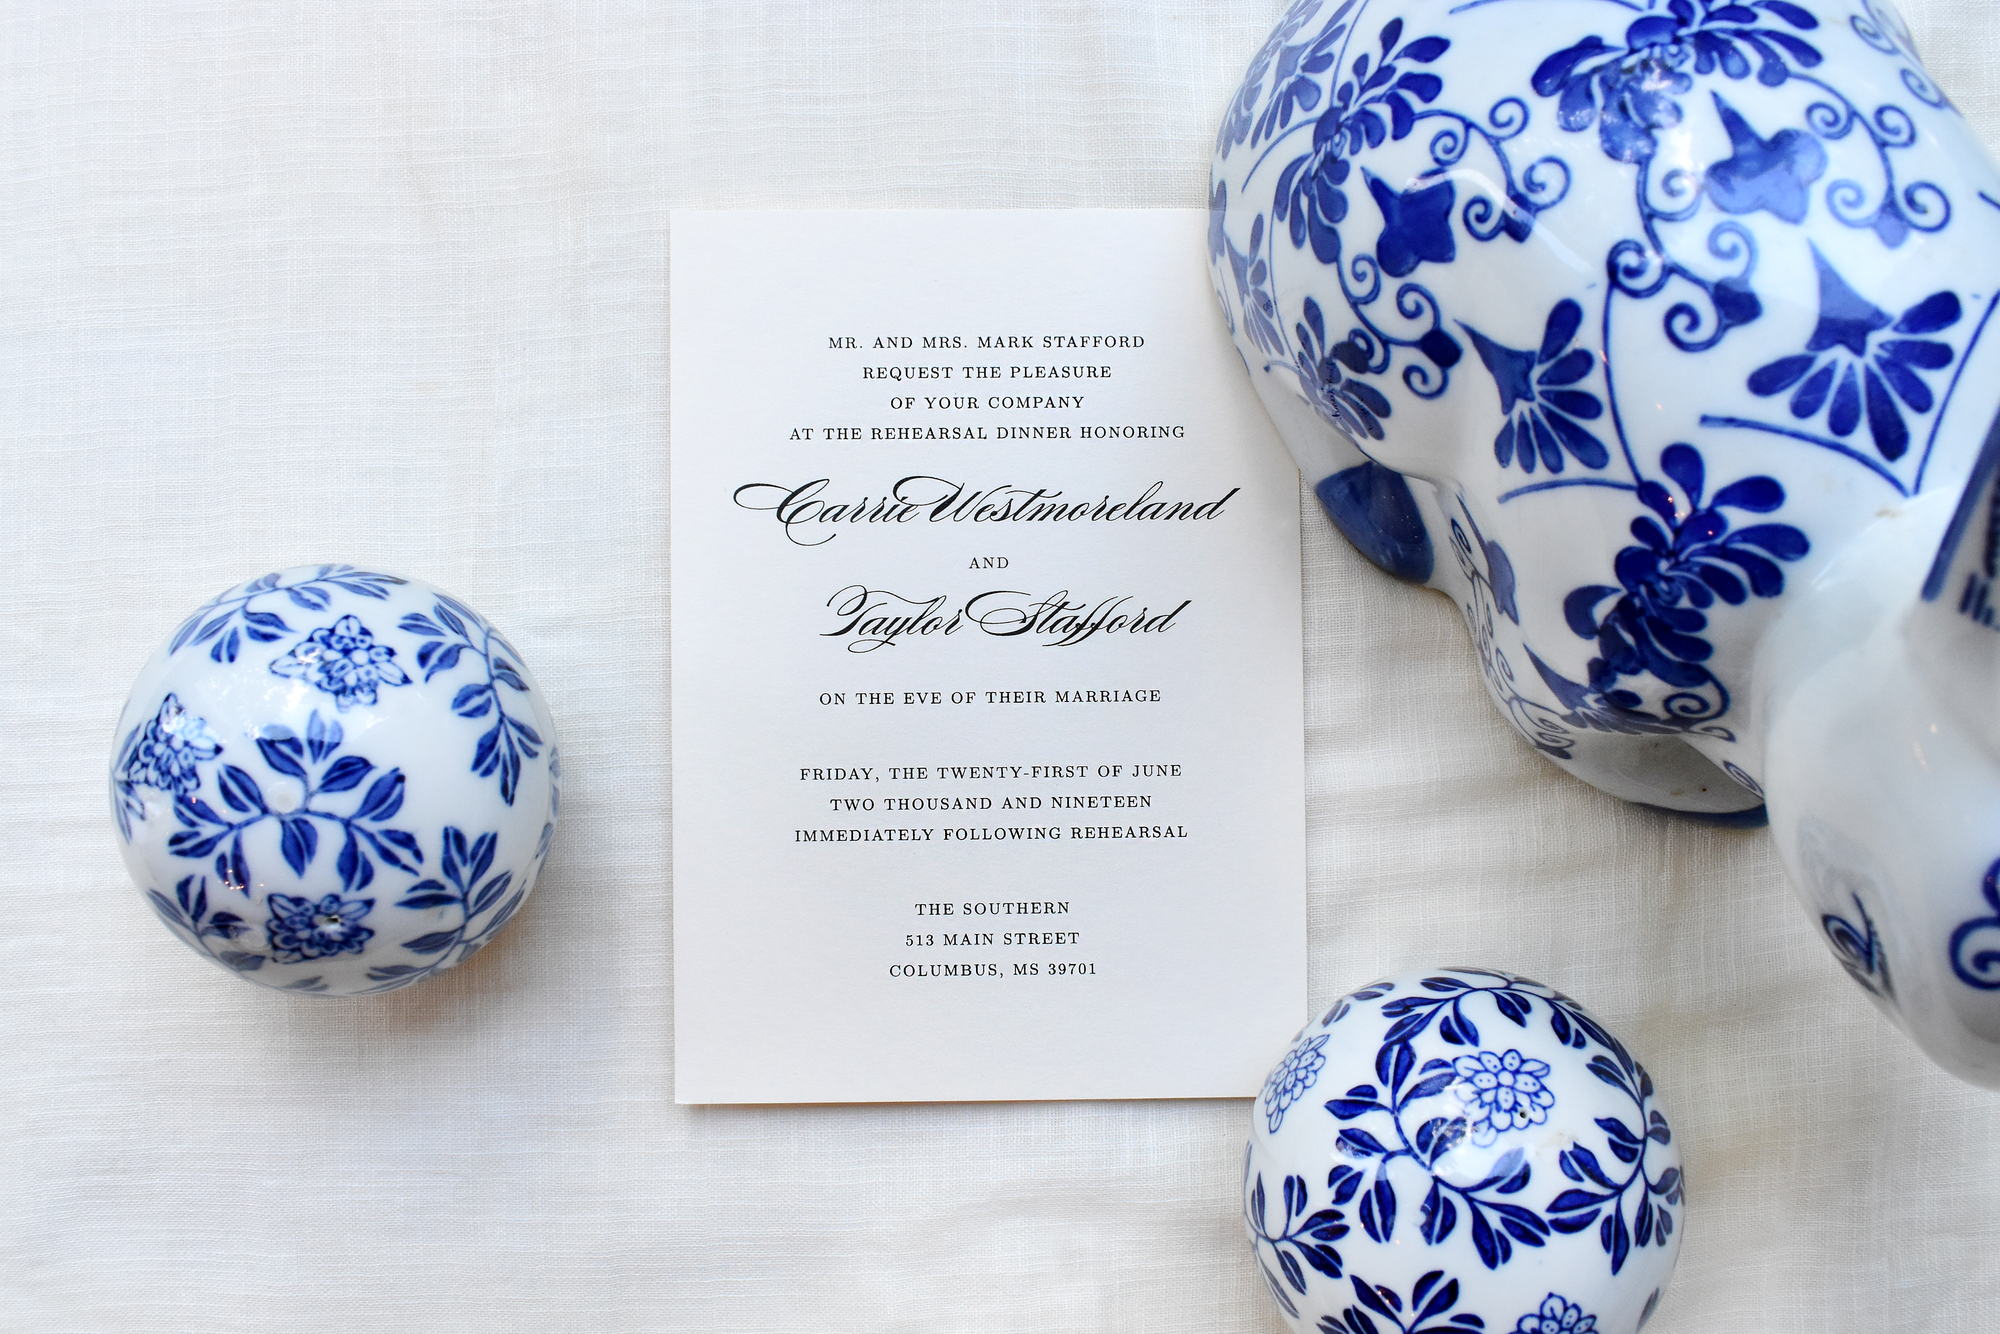 MR. AND MRS. MARK STAFFORD
REQUEST THE PLEASURE
OF YOUR COMPANY
AT THE REHEARSAL DINNER HONORING
Carrie Westmoreland
AND
Taylor Stafford
ON THE EVE OF THEIR MARRIAGE
FRIDAY, THE TWENTY-FIRST OF JUNE
TWO THOUSAND AND NINETEEN
IMMEDIATELY FOLLOWING REHEARSAL
THE SOUTHERN
513 MAIN STREET
COLUMBUS, MS 39701